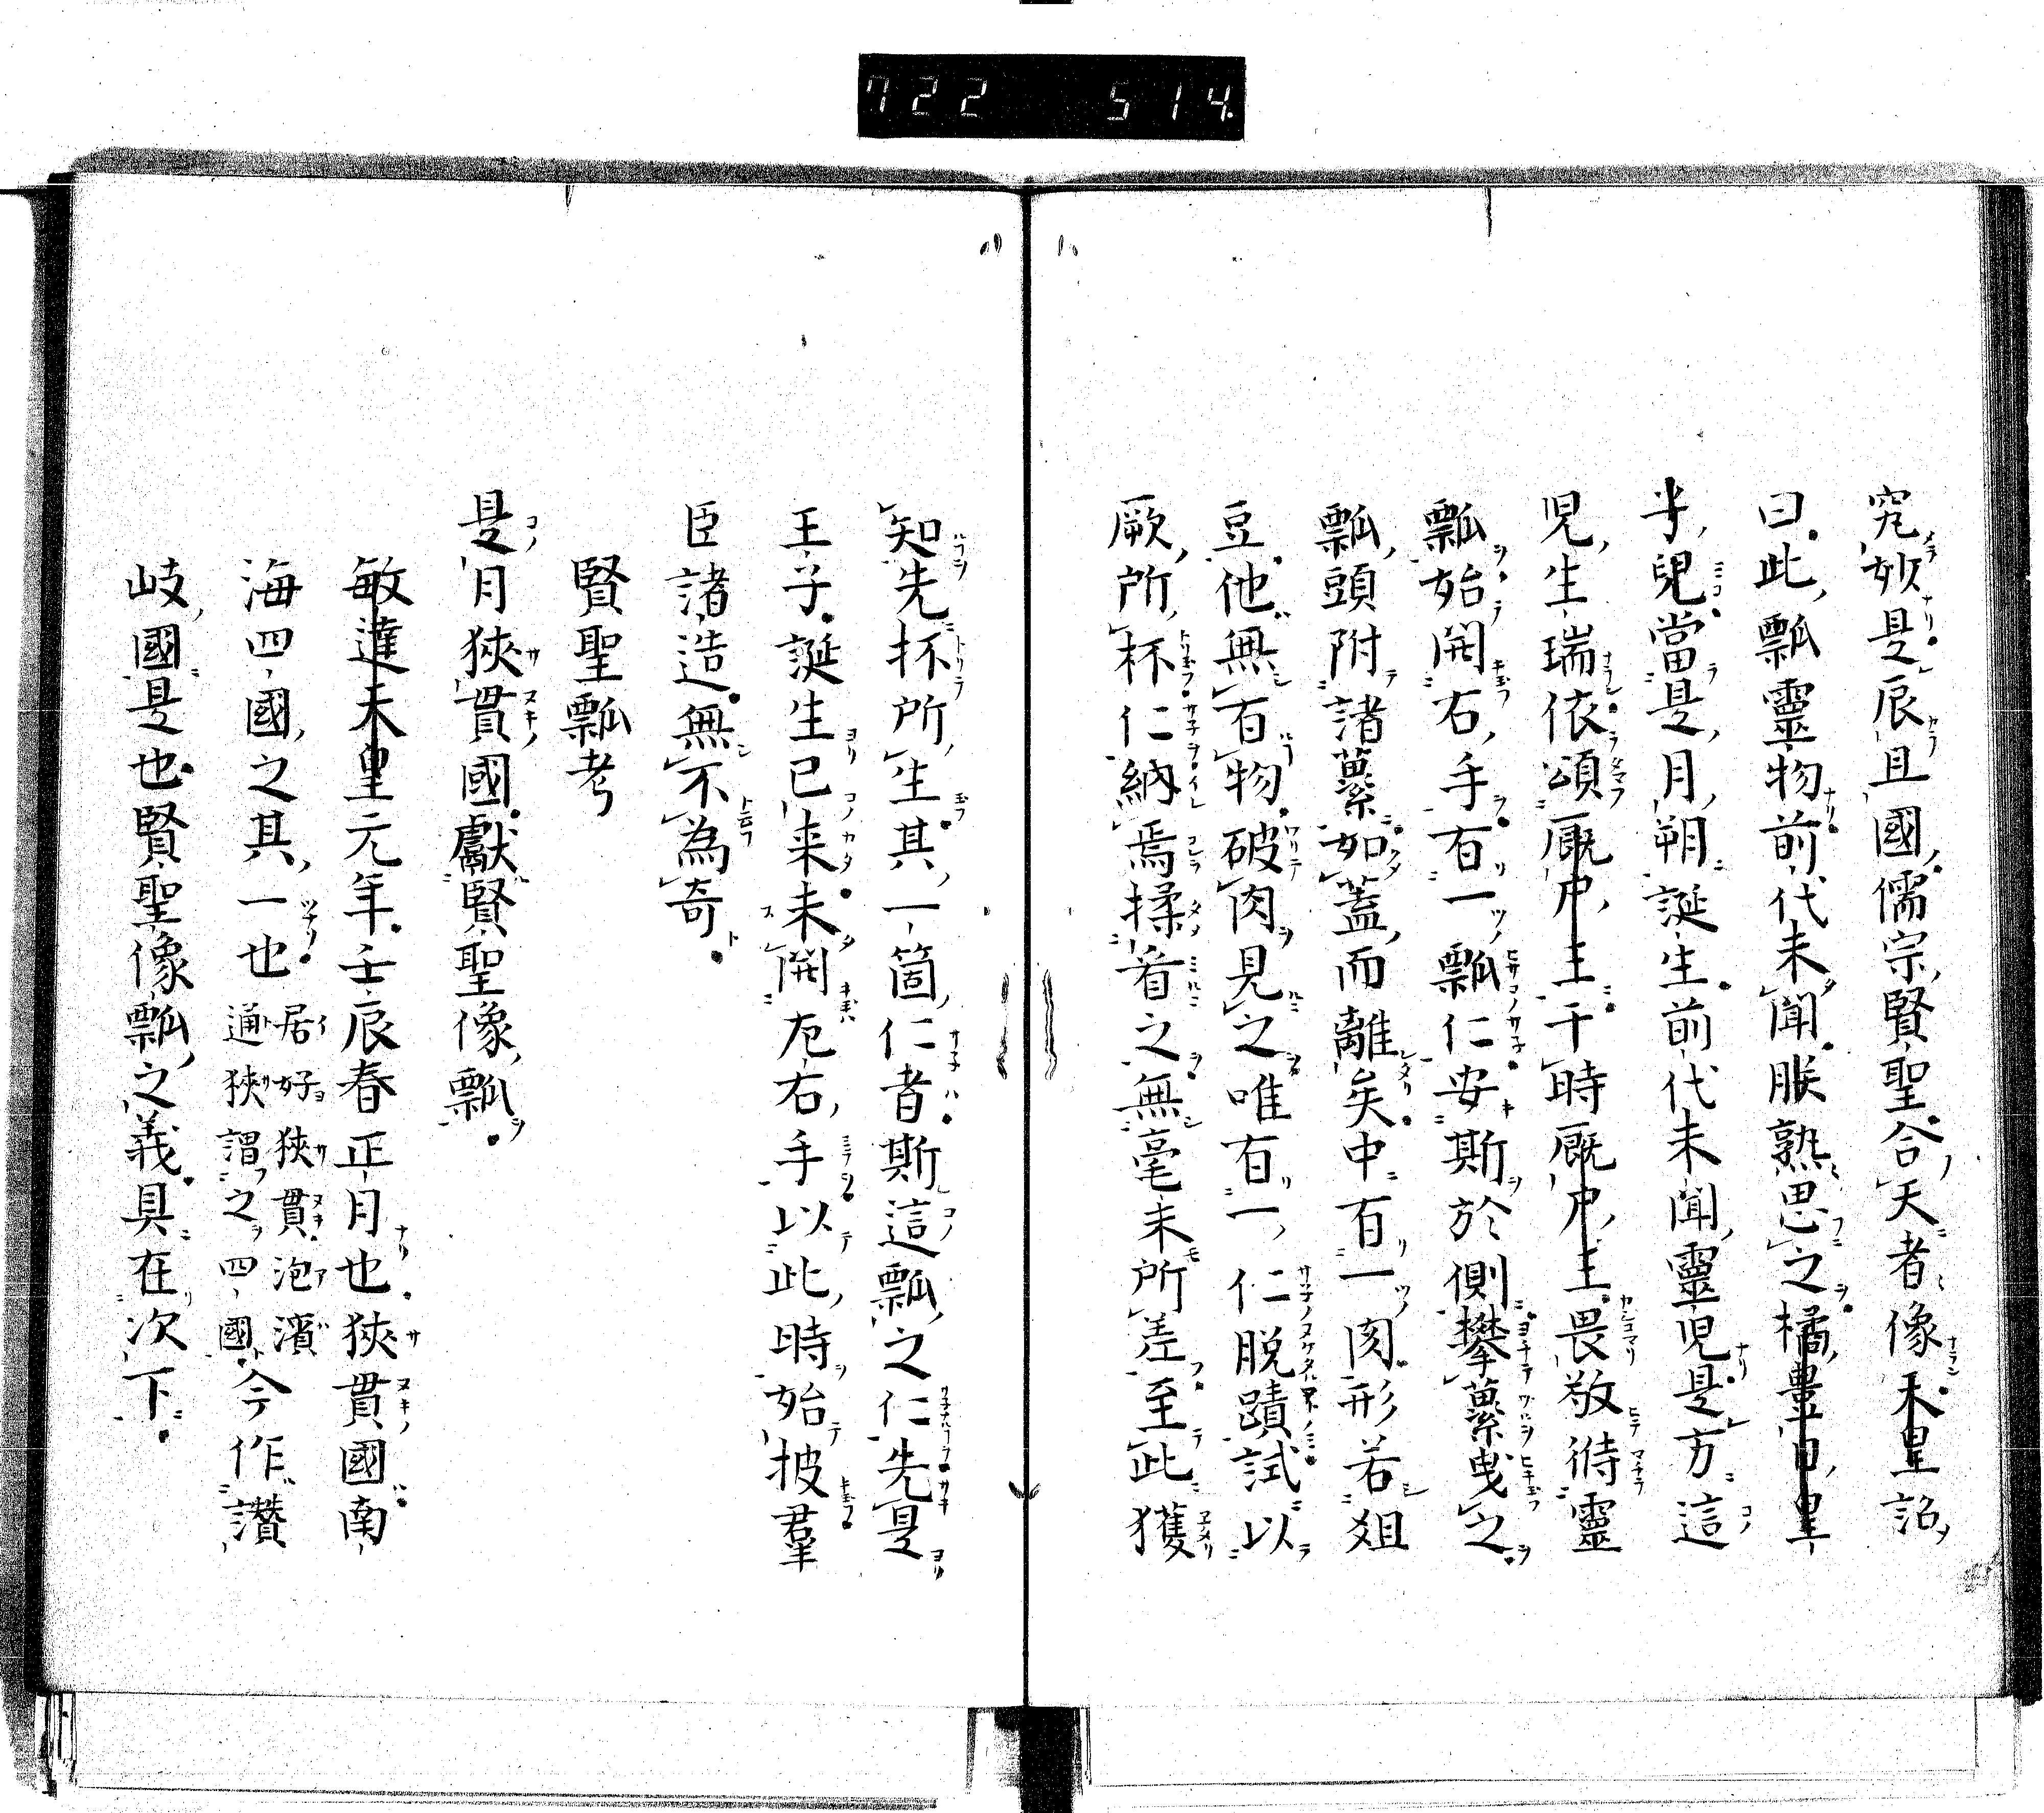 722 514
究妙是辰且國儒宗賢聖合天者像天皇詔
曰此瓢靈物前代未聞朕熟思之橘豊日皇
半兒當是月朔誕生前代未聞靈児是方這
児生瑞依頌厩戸王于時厩戸王畏敬待靈
瓢始開右手有一瓢仁安斯於側攀蔂曳之
瓢頭附諸蔂如蓋而離矣中有一肉形若俎
豆他無百物破肉見之唯有一仁脱蹟試以
厥所杯仁納焉揉着之無毫末所差至此獲
知先杯所生其一箇仁者斯這瓢之仁先是
王子誕生已来未開左右手以此時始披羣
臣諸造無不為奇
賢聖瓢考
是月狹貫國獻賢聖像瓢
敏達天皇元年壬辰春正月也狹貫國南
海四國之其一也居好狹貫泡濱通狹謂之四國今作讃
岐國是也賢聖像瓢之義具在次下